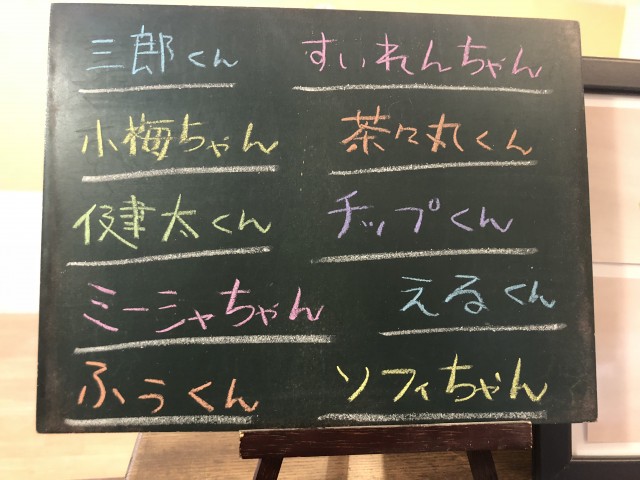 三郎くん
すいれんちゃん
小梅ちゃん
茶々丸くん
健太くん
チップくん
ミーシャちゃん
えるくん
ふうくん
ソフィちゃん